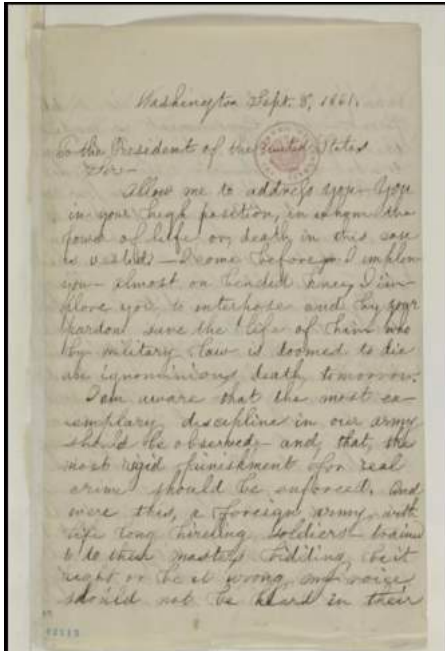 Washington Sept. 8, 1861.
To the President of the United States
Sir—
Allow me to address you— You
in your high position, in whom the
power of life or death in this case
is vested— I come before— I implore
you— almost on bended knee, I im-
plore you, to interpose and by your
pardon save the life of him who
by military law is doomed to die
an ignominious death tomorrow.
I am aware that the most ex-
emplary discipline in our army
should be observed, and, that, the
most rigid punishment for real
crime should be enforced. And
were this, a foreign army, with
life long hireling soldiers trained
to do their masters bidding, be it
right or be it wrong, my voice
should not be heard in their